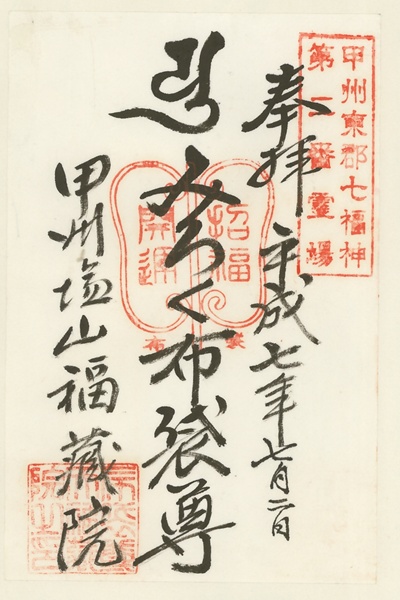 甲州東郡七福神
第二番靈場
奉拝 平成七年七月二日
みろく布袋尊
招福
開運
甲州塩山福藏院